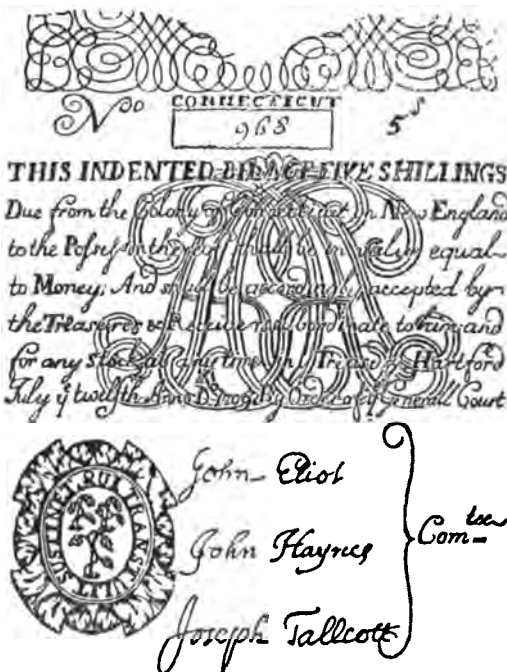 CONNECTICUT
No 968 5s
THIS INDENTED BILL OF FIVE SHILLINGS
Due from the Colony of Connecticut in New England
to the Possessor thereof shall be in value equal
to Money; And shall be accordingly accepted by
the Treasurer & Receivers subordinate to him; and
for any Stock at any time in ye Treasury Hartford
July ye twelfth Anno Do: 1709. By Order of ye Generall Court
SUSTINET QUI TRANSTULIT
John Eliot
John Haynes
Joseph Tallcott
Com-tee